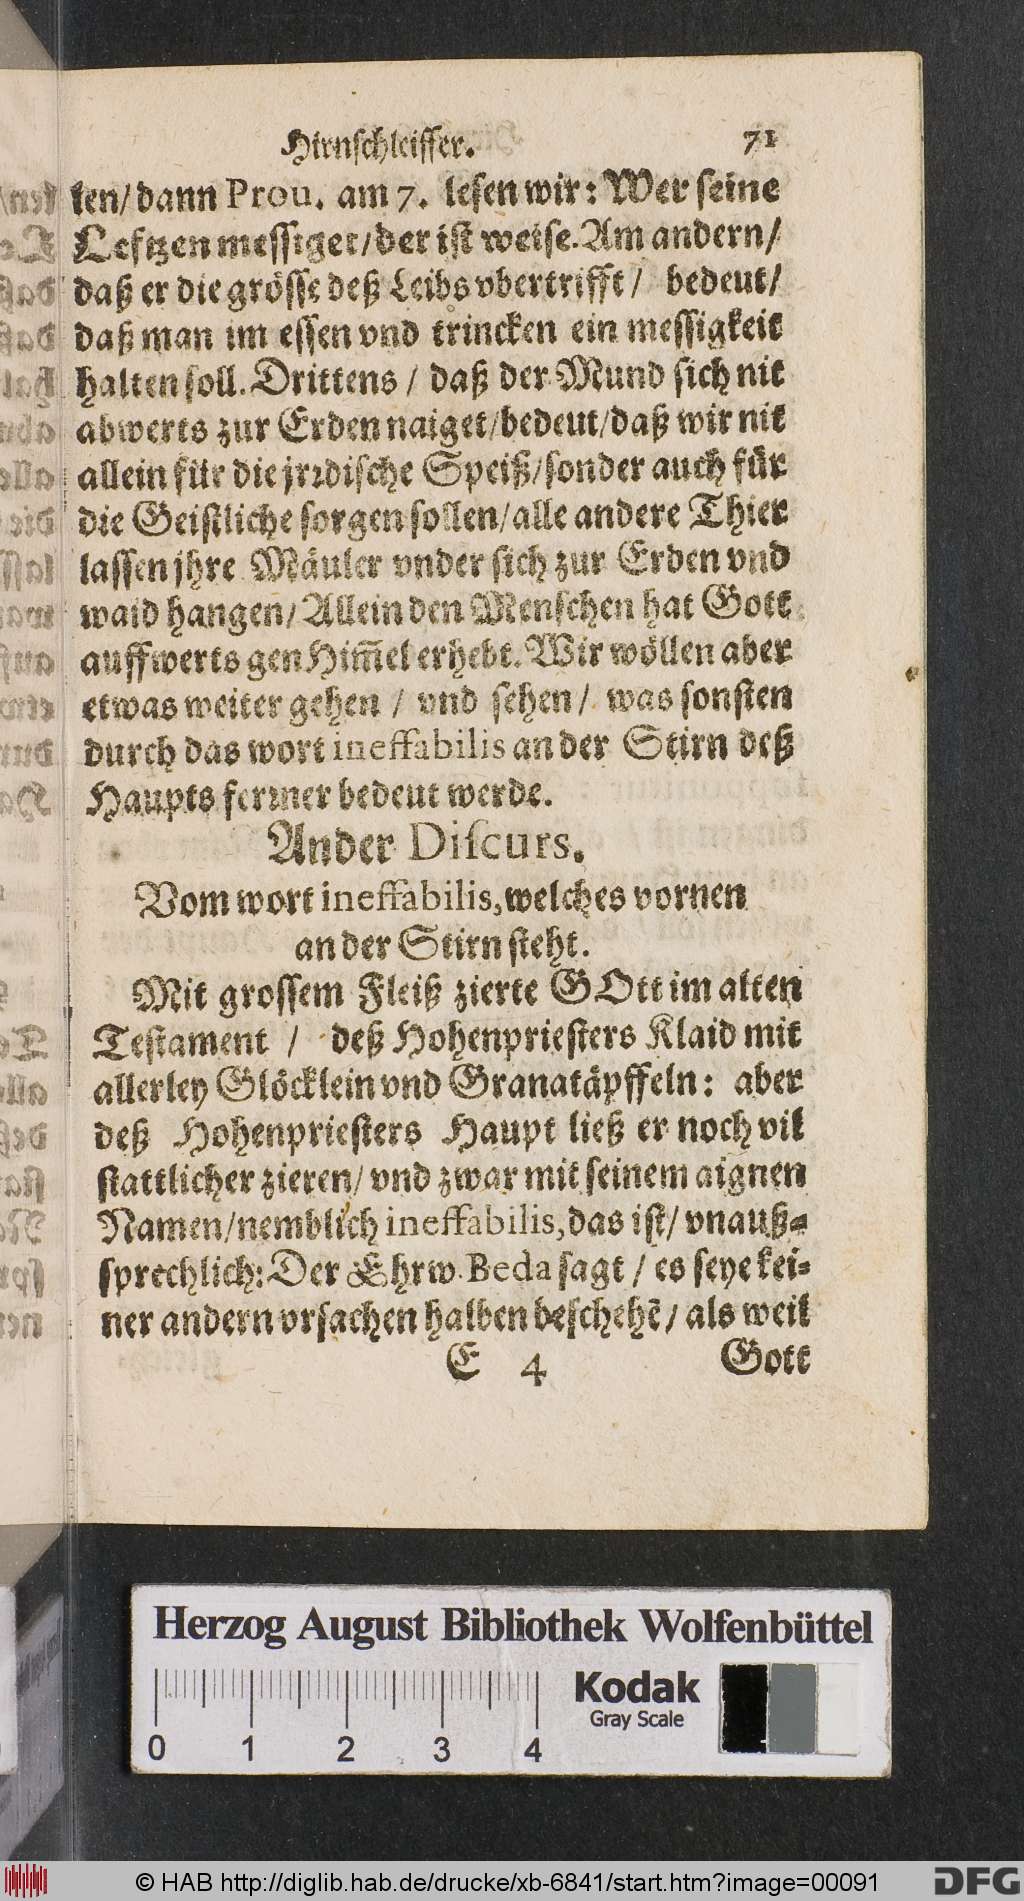 Hirnſchleiffer. 71
ten/ dann Prou. am 7. leſen wir: Wer ſeine
Lefftzen meſſiget/ der iſt weiſe. Am andern/
daß er die gröſſe deß Leibs vbertrifft/ bedeut/
daß man im eſſen vnd trincken ein meſſigkeit
halten ſoll. Drittens / daß der Mund ſich nit
abwerts zur Erden naiget/ bedeut/ daß wir nit
allein für die jrꝛdiſche Speiß/ ſonder auch für
die Geiſtliche ſorgen ſollen/ alle andere Thier
laſſen jhre Mäuler vnder ſich zur Erden vnd
waid hangen/ Allein den Menſchen hat Gott
auffwerts gen Him̃el erhebt. Wir wöllen aber
etwas weiter gehen / vnd ſehen / was ſonſten
durch das wort ineffabilis an der Stirn deß
Haupts ferꝛner bedeut werde.
Ander Diſcurs.
Vom wort ineffabilis, welches vornen
an der Stirn ſteht.
Mit groſſem Fleiß zierte GOtt im alten
Teſtament / deß Hohenprieſters Klaid mit
allerley Glöcklein vnd Granatäpffeln: aber
deß Hohenprieſters Haupt ließ er noch vil
ſtattlicher zieren/ vnd zwar mit ſeinem aignen
Namen/ nemblich ineffabilis, das iſt/ vnauß⸗
ſprechlich: Der Ehrw. Beda ſagt / es ſeye kei⸗
ner andern vrſachen halben beſchehẽ/ als weil
E 4 Gott
Herzog August Bibliothek Wolfenbüttel
Kodak
Gray Scale
0 1 2 3 4
© HAB http://diglib.hab.de/drucke/xb-6841/start.htm?image=00091
DFG